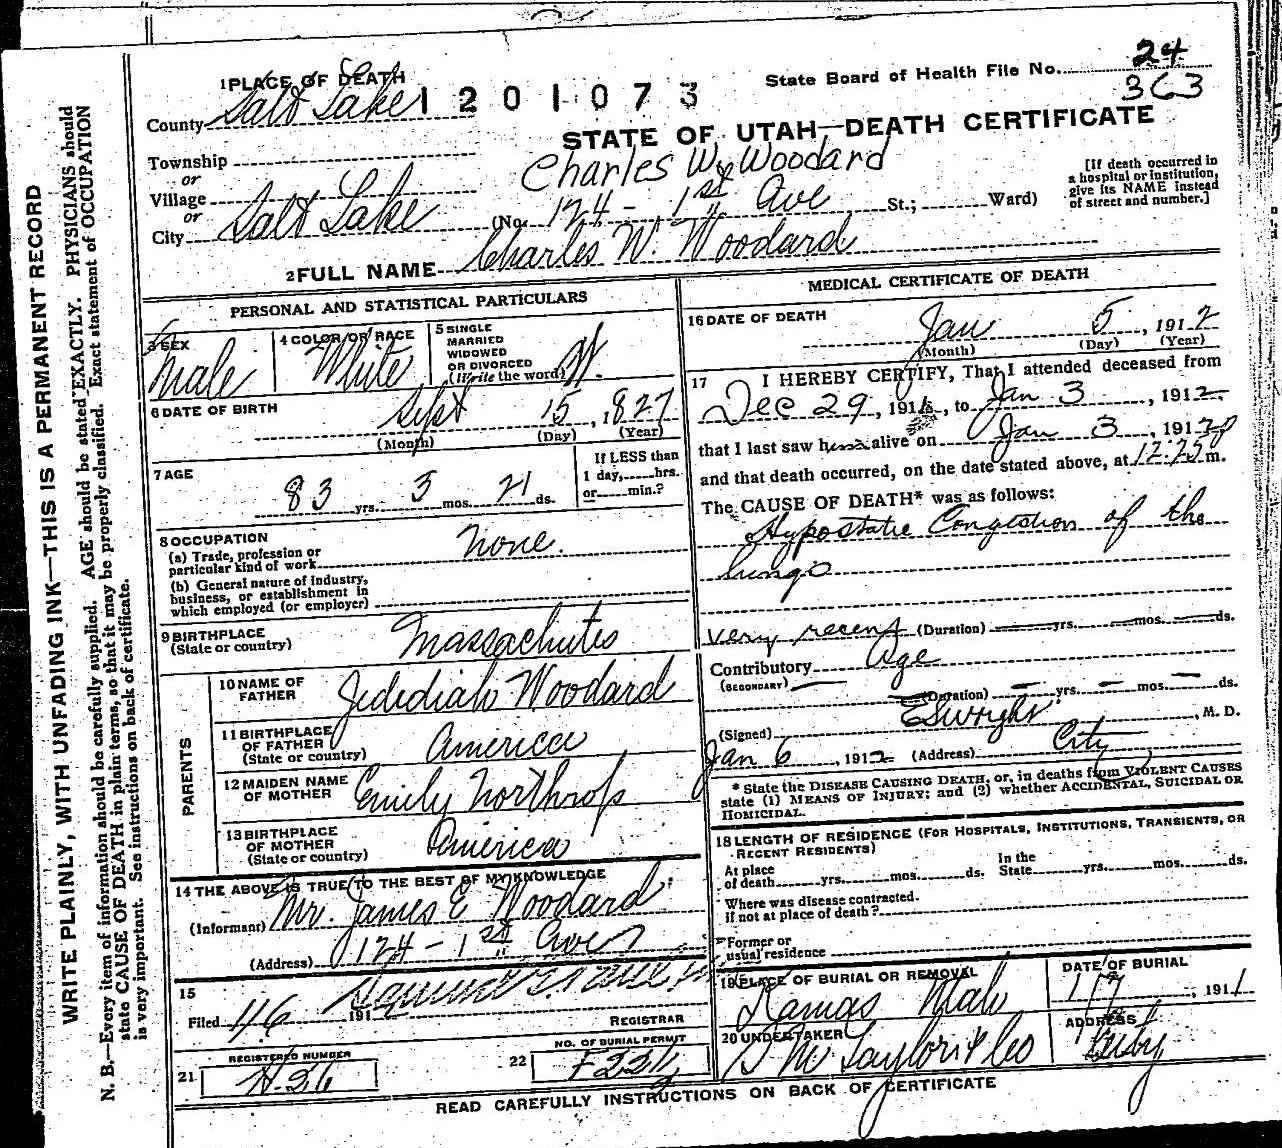 24
1 PLACE OF DEATH
State Board of Health File No. 363
County Salt Lake 1201073
STATE OF UTAH—DEATH CERTIFICATE
Township
or
Charles W. Woodard
Village
or
City Salt Lake (No. 124 - 1st Ave St.; Ward)
[If death occurred in
a hospital or institution,
give its NAME instead
of street and number.]
2 FULL NAME Charles W. Woodard
PERSONAL AND STATISTICAL PARTICULARS
3 SEX
Male
4 COLOR OR RACE
White
5 SINGLE
MARRIED
WIDOWED
OR DIVORCED
(Write the word) W.
6 DATE OF BIRTH
Sept 15, 1827
(Month) (Day) (Year)
7 AGE
83 yrs. 3 mos. 21 ds.
If LESS than
1 day, hrs.
or min.?
8 OCCUPATION
(a) Trade, profession or
particular kind of work None.
(b) General nature of industry,
business, or establishment in
which employed (or employer)
9 BIRTHPLACE
(State or country) Massachutes
PARENTS
10 NAME OF
FATHER Jedediah Woodard
11 BIRTHPLACE
OF FATHER
(State or country) America
12 MAIDEN NAME
OF MOTHER Emily Northrop
13 BIRTHPLACE
OF MOTHER
(State or country) America
14 THE ABOVE IS TRUE TO THE BEST OF MY KNOWLEDGE
(Informant) Mr. James E Woodard
(Address) 124 - 1st Ave
15
Filed 191
REGISTRAR
REGISTERED NUMBER
21 H.36
NO. OF BURIAL PERMIT
22
MEDICAL CERTIFICATE OF DEATH
16 DATE OF DEATH
Jan 5, 1912
(Month) (Day) (Year)
17 I HEREBY CERTIFY, That I attended deceased from
Dec 29, 191, to Jan 3, 1912.
that I last saw h alive on Jan 3, 1912
and that death occurred, on the date stated above, at 12:25 m.
The CAUSE OF DEATH* was as follows:
Hypostatic Congestion of the
lungs
very recent (Duration) yrs. mos. ds.
Contributory Age
(SECONDARY)
(Duration) yrs. mos. ds.
(Signed) E S Wright, M. D.
Jan 6, 1912 (Address) City
* State the DISEASE CAUSING DEATH, or, in deaths from VIOLENT CAUSES
state (1) MEANS OF INJURY; and (2) whether ACCIDENTAL, SUICIDAL OR
HOMICIDAL.
18 LENGTH OF RESIDENCE (FOR HOSPITALS, INSTITUTIONS, TRANSIENTS, OR
RECENT RESIDENTS)
At place
of death yrs. mos. ds.
In the
State yrs. mos. ds.
Where was disease contracted.
if not at place of death?
Former or
usual residence
19 PLACE OF BURIAL OR REMOVAL
Kamas Utah
DATE OF BURIAL
1/7, 1911
20 UNDERTAKER
S M Taylor & Co
ADDRESS
City
READ CAREFULLY INSTRUCTIONS ON BACK OF CERTIFICATE
WRITE PLAINLY, WITH UNFADING INK—THIS IS A PERMANENT RECORD
N. B.—Every item of information should be carefully supplied. AGE should be stated EXACTLY. PHYSICIANS should
state CAUSE OF DEATH in plain terms, so that it may be properly classified. Exact statement of OCCUPATION
is very important. See instructions on back of certificate.